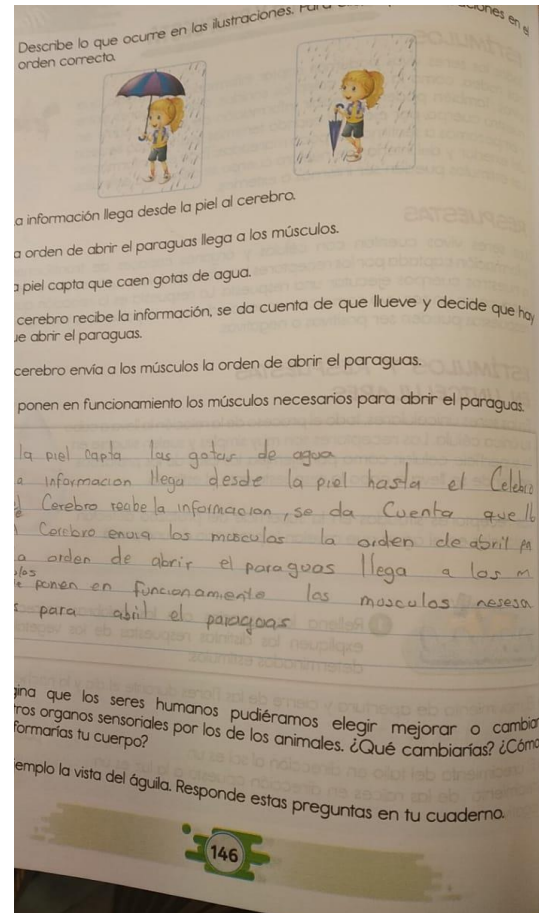 Describe lo que ocurre en las ilustraciones.
orden correcto.
a información llega desde la piel al cerebro.
a orden de abrir el paraguas llega a los músculos.
a piel capta que caen gotas de agua.
cerebro recibe la información, se da cuenta de que llueve y decide que hay
ue abrir el paraguas.
cerebro envía a los músculos la orden de abrir el paraguas.
ponen en funcionamiento los músculos necesarios para abrir el paraguas.
la piel capta las gotas de agua
a informacion llega desde la piel hasta el Celebro
Cerebro recibe la informacion, se da Cuenta que ll
Cerebro envia los musculos la orden de abril
a orden de abrir el paraguas llega a los m
ponen en funcionamiento los musculos nesesa
s para abril el paragoas
gina que los seres humanos pudiéramos elegir mejorar o cambiar
tros organos sensoriales por los de los animales. ¿Qué cambiarías? ¿Cómo
formarías tu cuerpo?
jemplo la vista del águila. Responde estas preguntas en tu cuaderno.
146